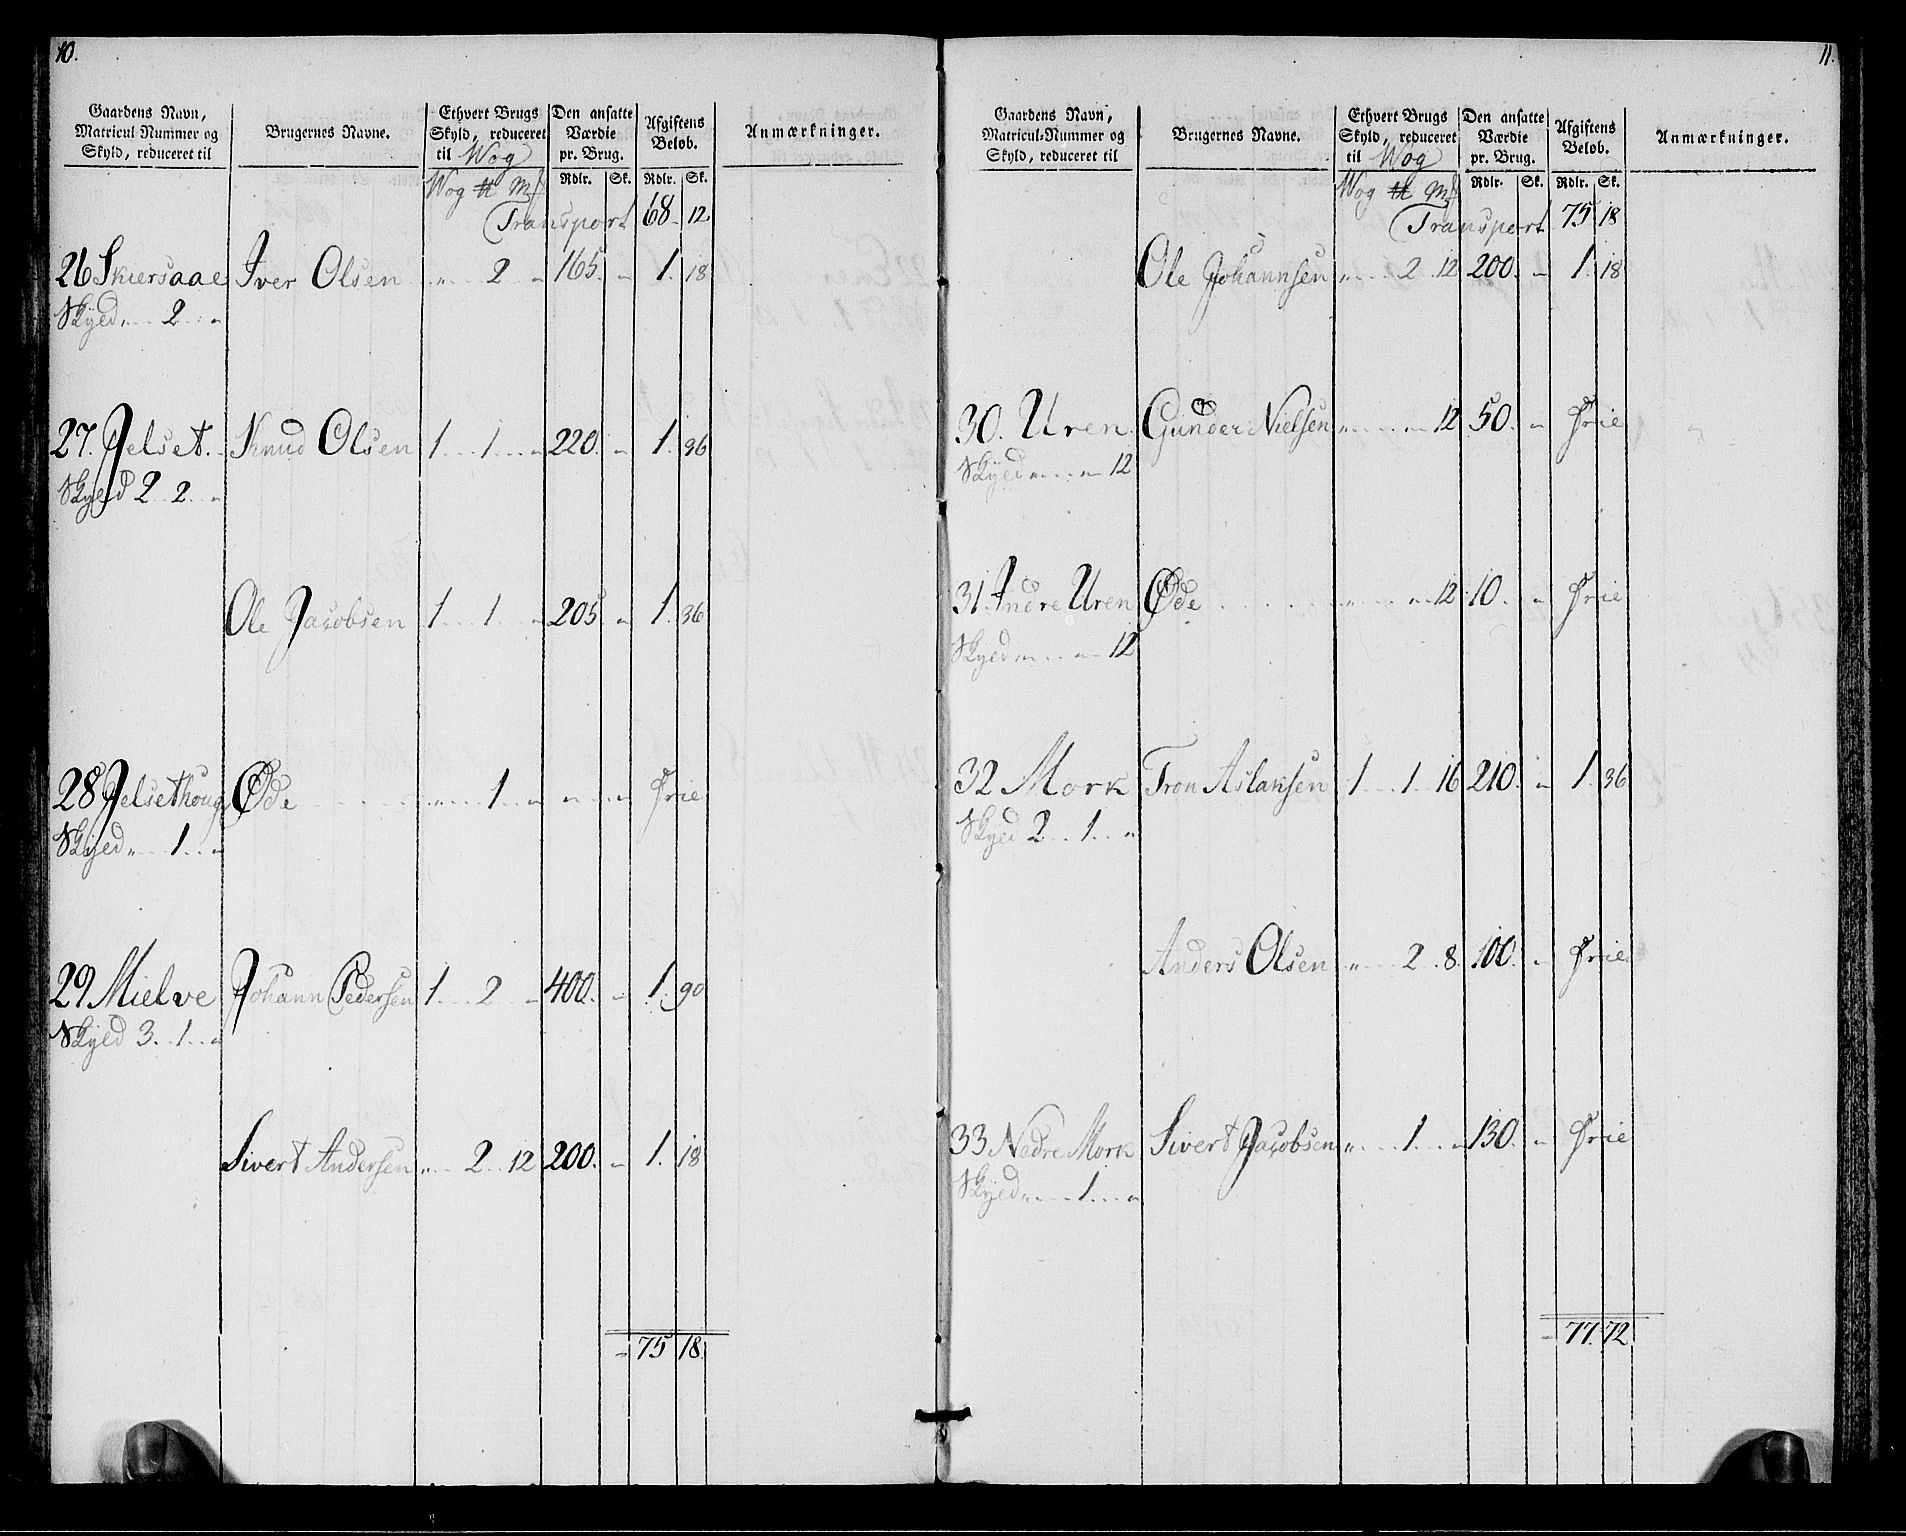 10.
Gaardens Navn, Matricul Nummer og Skyld, reduceret til
Brugernes Navne.
Ethvert Brugs Skyld, reduceret til Wog
Den ansatte Værdie pr. Brug.
Afgiftens Beløb.
Anmærkninger.
Wog ℔ Mf Rdlr. Sk. Rdlr. Sk.
Transport 68 12
26 Skiersaae Iver Olsen " 2 " 165. " 1. 18
Skyld " 2 "
27. Jelset. Knud Olsen 1 1 " 220. " 1. 36
Skyld 2 2 "
Ole Jacobsen 1 1 " 205 " 1. 36
28 Jelsethoug Øde " 1 " " " Frie
Skyld " 1 "
29 Mielve Johann Pedersen 1 2 " 400. " 1. 90
Skyld 3. 1 "
Sivert Andersen " 2 12 200. " 1. 18
75 18.
11.
Gaardens Navn, Matricul-Nummer og Skyld, reduceret til
Brugernes Navne.
Ethvert Brugs Skyld, reduceret til Wog
Den ansatte Værdie pr. Brug.
Afgiftens Beløb.
Anmærkninger.
Wog ℔ Mf Rdlr. Sk. Rdlr. Sk.
Transport 75 18
Ole Johannsen " 2 12 200. " 1. 18
30. Uren Gunder Nielsen " " 12 50. " Frie
Skyld " " 12
31. Indre Uren Øde " " 12 10. " Frie
Skyld " " 12
32 Mork Tron Aslaksen 1 1 16 210. " 1. 36
Skyld 2 1 "
Anders Olsen " 2 8. 100. " Frie
33 Nedre Mork Sivert Jacobsen " 1 " 130. " Frie
Skyld " 1 "
77. 72